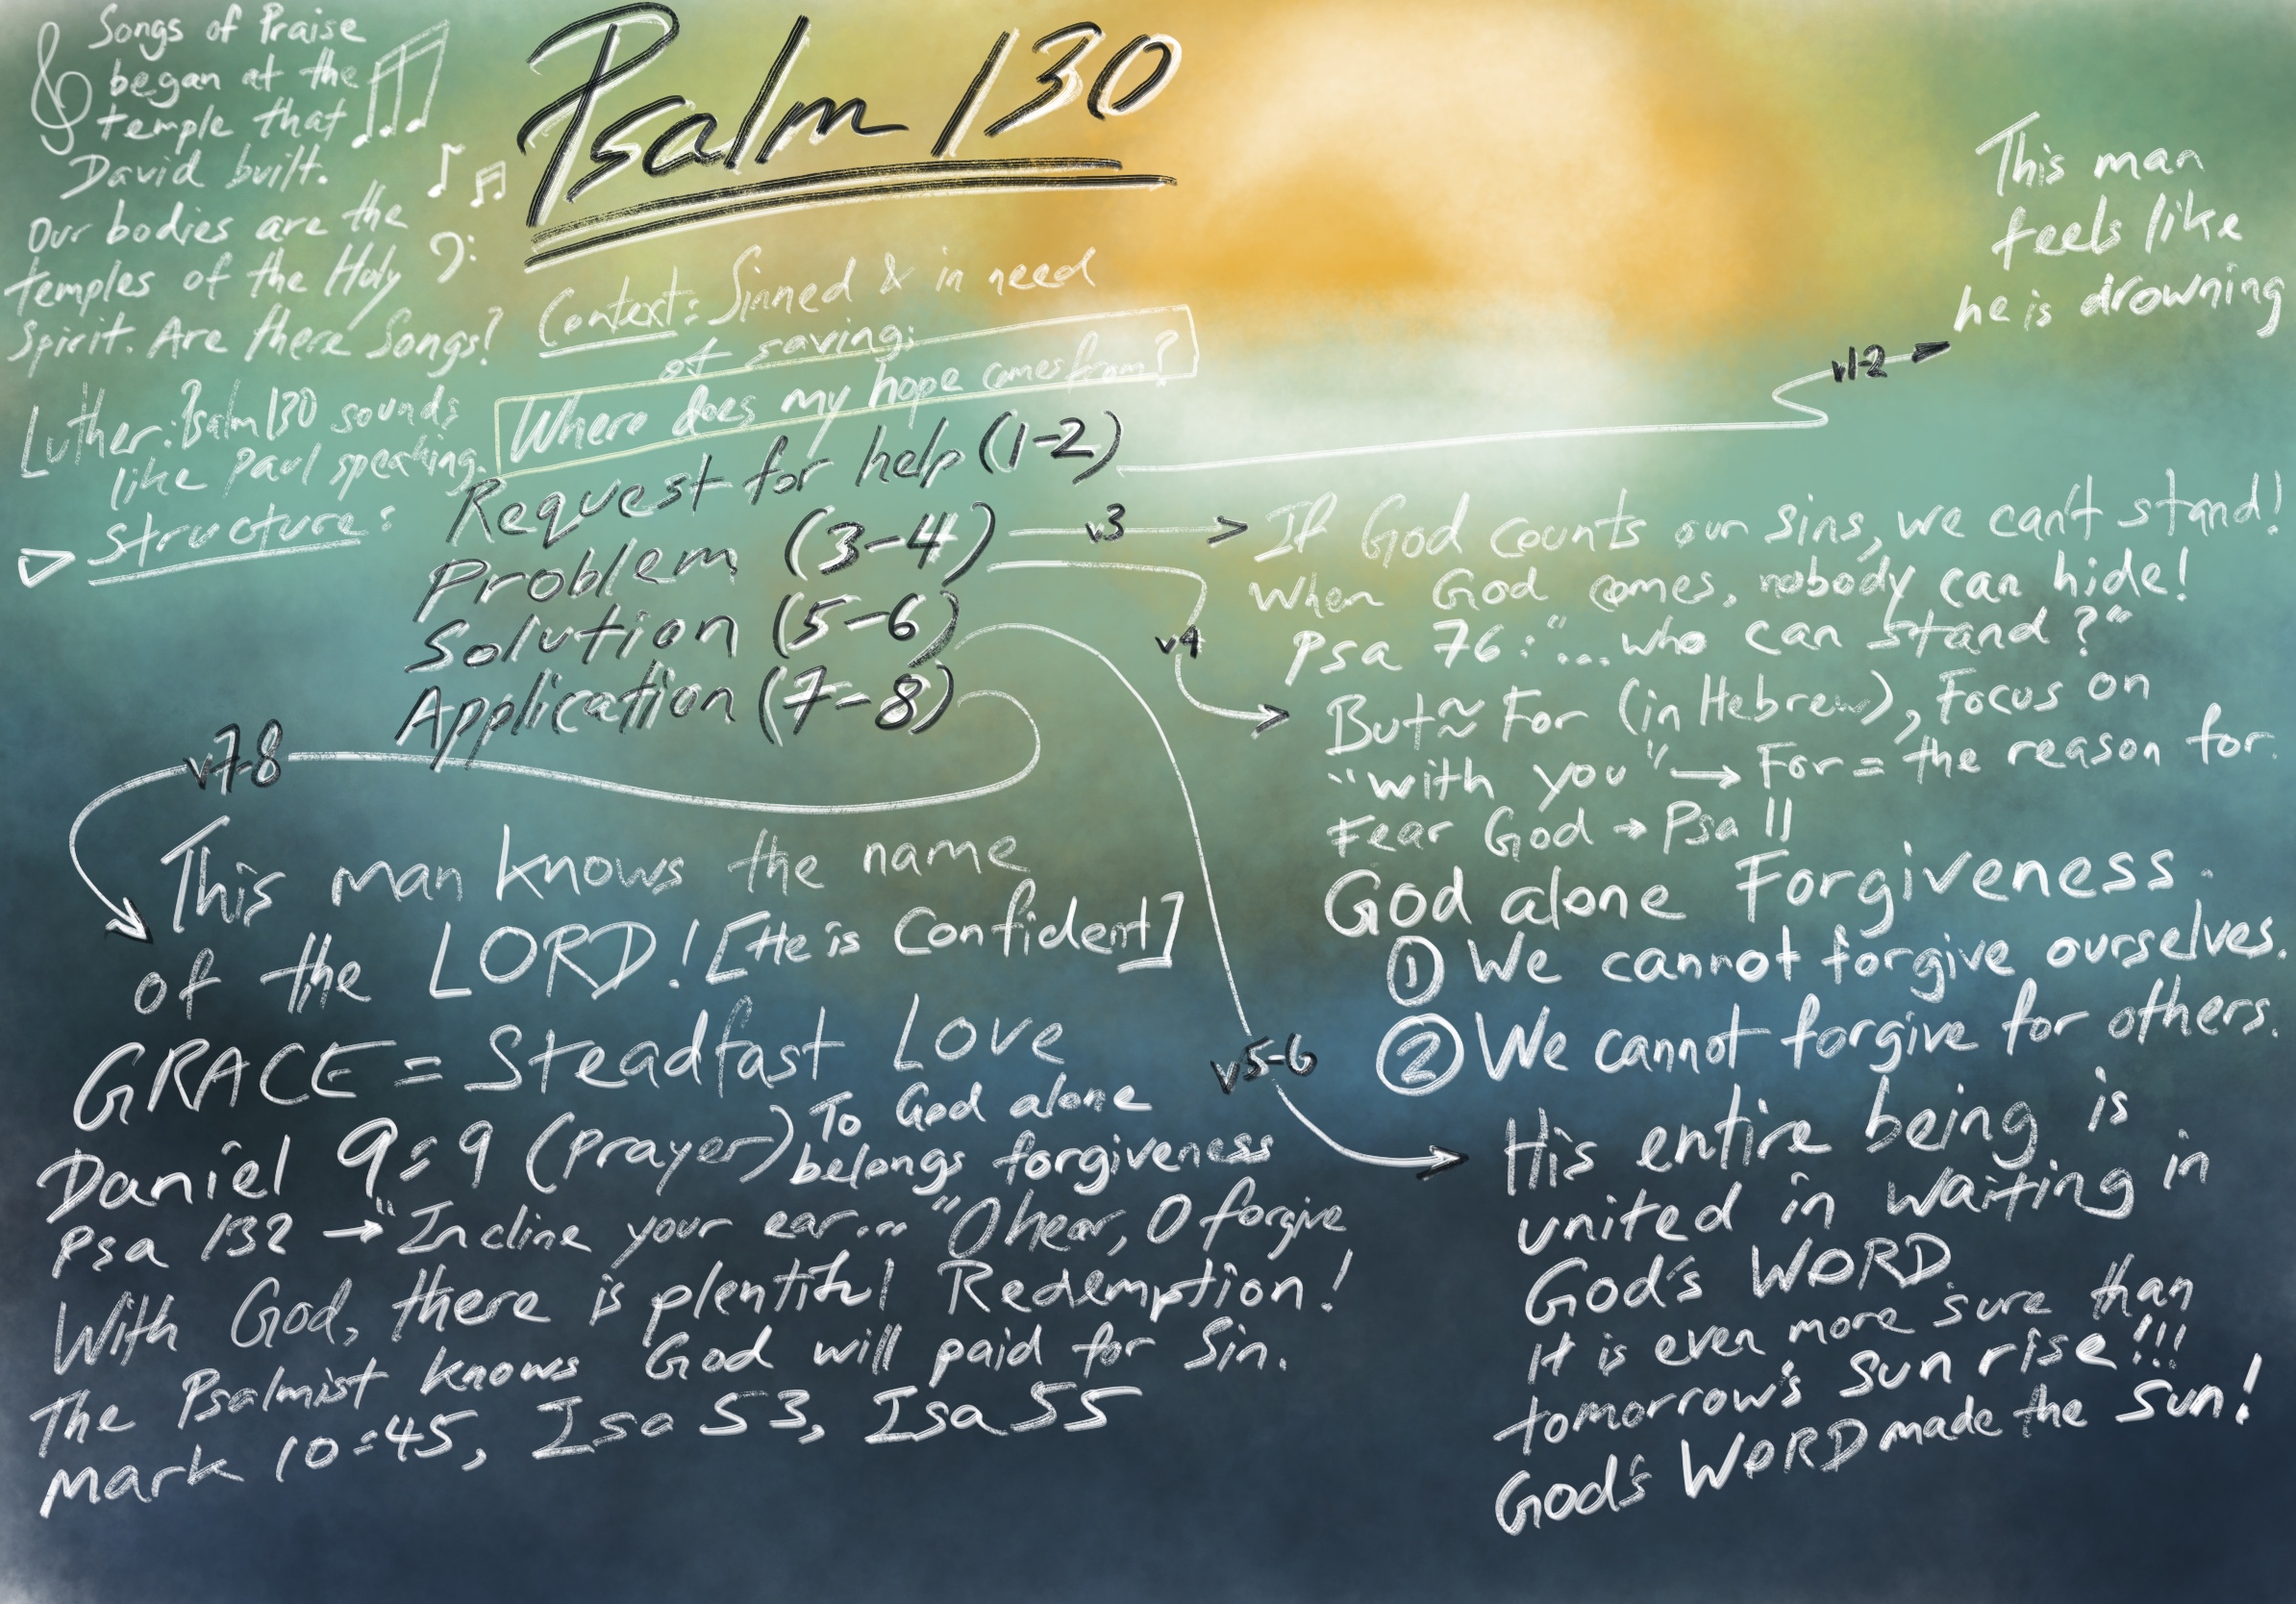 Psalm 130
Songs of Praise
began at the
temple that
David built.
Our bodies are the
temples of the Holy
Spirit. Are there Songs?
Luther: Psalm 130 sounds
like Paul speaking.
Context: Sinned & in need
of saving:
Where does my hope comes from?
Structure:
Request for help (1-2)
Problem (3-4)
Solution (5-6)
Application (7-8)
v1-2
This man
feels like
he is drowning
v3
If God counts our sins, we can't stand!
When God comes, nobody can hide!
Psa 76: "...who can stand?"
v4
But ≈ For (in Hebrew), Focus on
"with you" → For = the reason for.
Fear God → Psa 11
God alone Forgiveness.
① We cannot forgive ourselves.
② We cannot forgive for others.
v5-6
His entire being is
united in waiting in
God's WORD.
It is even more sure than
tomorrow's sun rise!!!
God's WORD made the sun!
v7-8
This man knows the name
of the LORD! [He is Confident]
GRACE = Steadfast Love
Daniel 9:9 (prayer) To God alone
belongs forgiveness
Psa 132 → "Incline your ear... "O hear, O forgive
With God, there is plentiful Redemption!
The Psalmist knows God will paid for Sin.
Mark 10:45, Isa 53, Isa 55